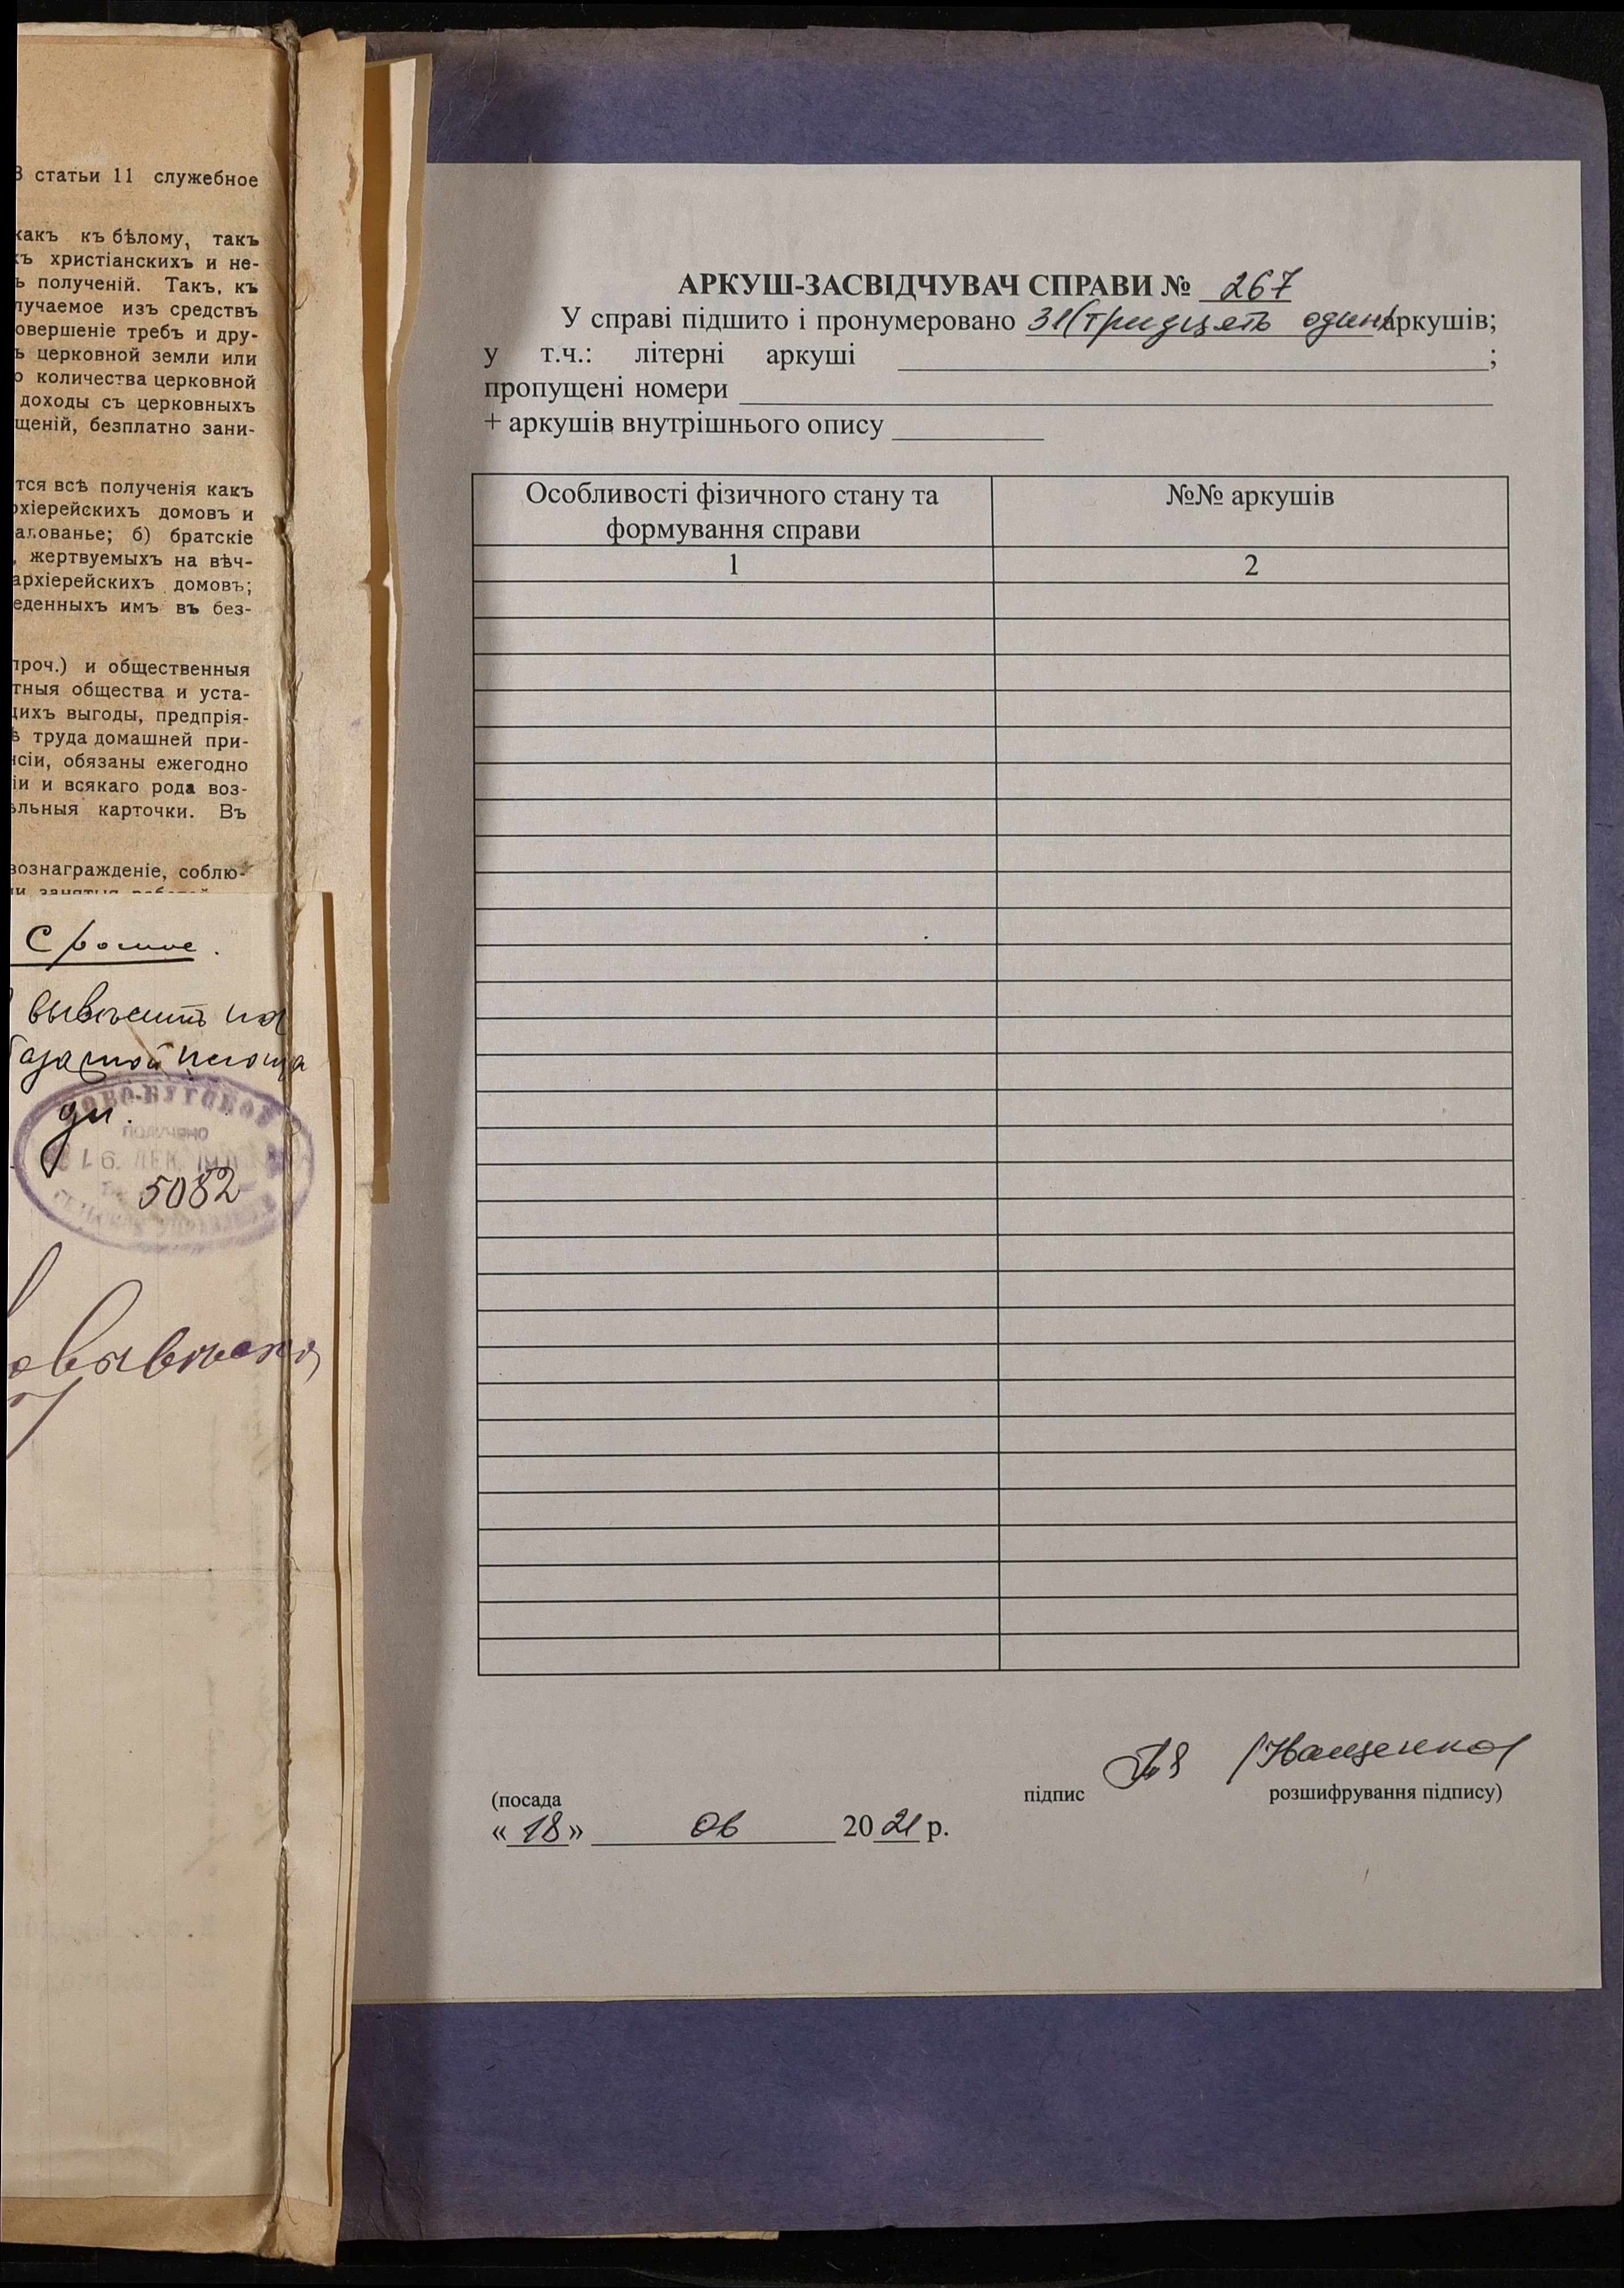 статьи 11 служебное
какъ къ бѣлому, такъ
христіанскихъ и не-
полученій. Такъ, къ
лучаемое изъ средствъ
овершеніе требъ и дру-
церковной земли или
количества церковной
доходы съ церковныхъ
щеній, безплатно зани-
тся всѣ полученія какъ
рхіерейскихъ домовъ и
алованье; б) братскіе
, жертвуемыхъ на вѣч-
архіерейскихъ домовъ;
еденныхъ имъ въ без-
проч.) и общественныя
тныя общества и уста-
щихъ выгоды, предпрія-
труда домашней при-
нсіи, обязаны ежегодно
іи и всякаго рода воз-
ельныя карточки. Въ
вознагражденіе, соблю-
Срочное.
вывѣсить на
базарной площа
ди.
ПОЛУЧЕНО
5082
АРКУШ-ЗАСВІДЧУВАЧ СПРАВИ № 267
У справі підшито і пронумеровано 31 (тридцять один) аркушів;
у т.ч.: літерні аркуші ;
пропущені номери
+ аркушів внутрішнього опису
Особливості фізичного стану та №№ аркушів
формування справи
1 2
(посада підпис розшифрування підпису)
« 18 » 06 20 21 р.